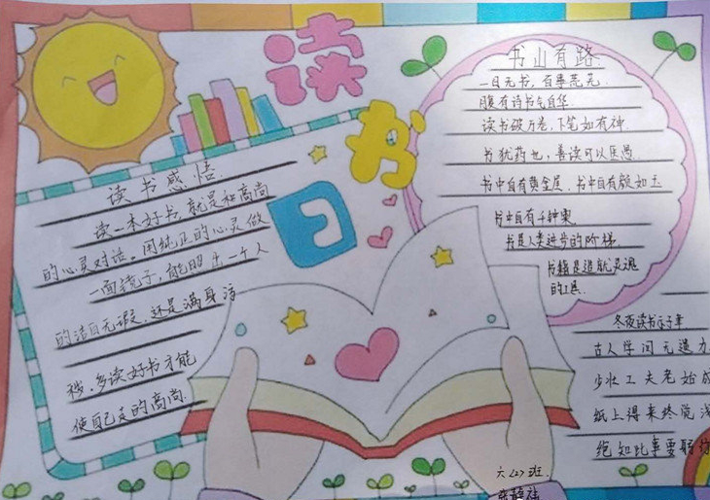 读书日
读书感悟
读一本好书,就是和高尚
的心灵对话。用纯正的心灵做
一面镜子,能照出一个人
的洁白无瑕,还是满身污
秽。多读好书才能
使自己走的高尚
书山有路
一日无书,百事荒芜
腹有诗书气自华
读书破万卷,下笔如有神
书犹药也,善读可以医愚
书中自有黄金屋,书中自有颜如玉
书中自有千钟粟
书是人类进步的阶梯
书籍是造就灵魂
的工具
冬夜读书示子聿
古人学问无遗力
少壮工夫老始成
纸上得来终觉浅
绝知此事要躬
六(2)班